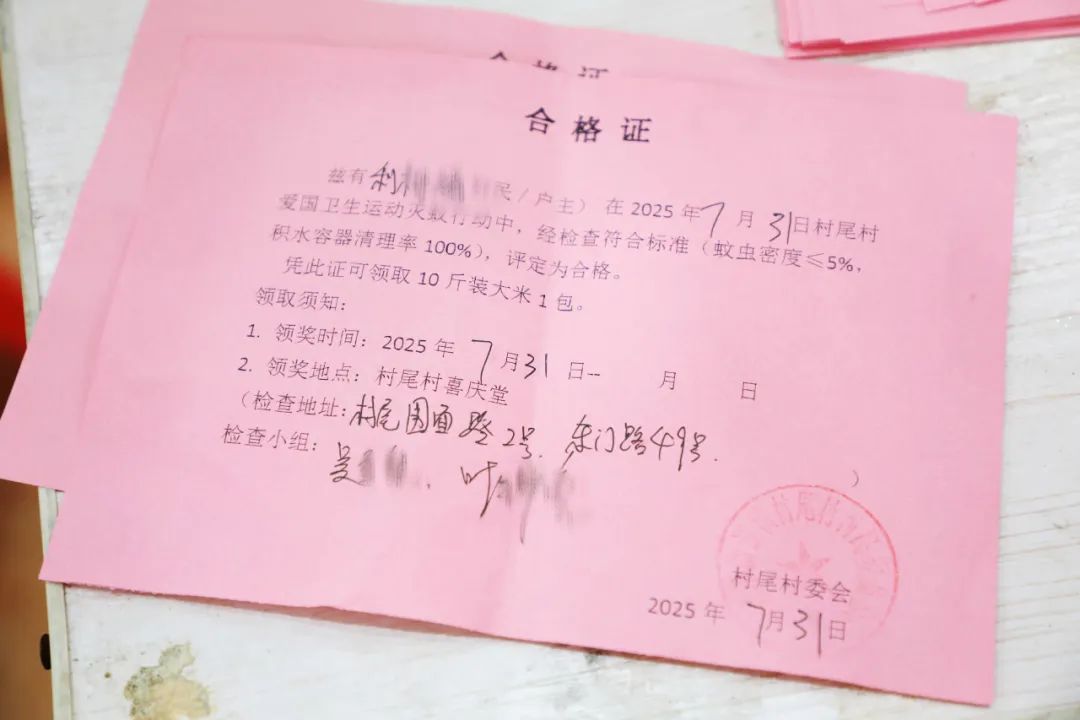 合格证
合格证
兹有利 民/户主）在2025年7月31日村尾村
爱国卫生运动灭蚊行动中，经检查符合标准（蚊虫密度≤5%，
积水容器清理率100%），评定为合格。
凭此证可领取10斤装大米1包。
领取须知：
1. 领奖时间：2025年7月31日-- 月 日
2. 领奖地点：村尾村喜庆堂
（检查地址：村尾围面路2号、东门路49号. ）
检查小组：吴 、叶
村尾村委会
2025年7月31日